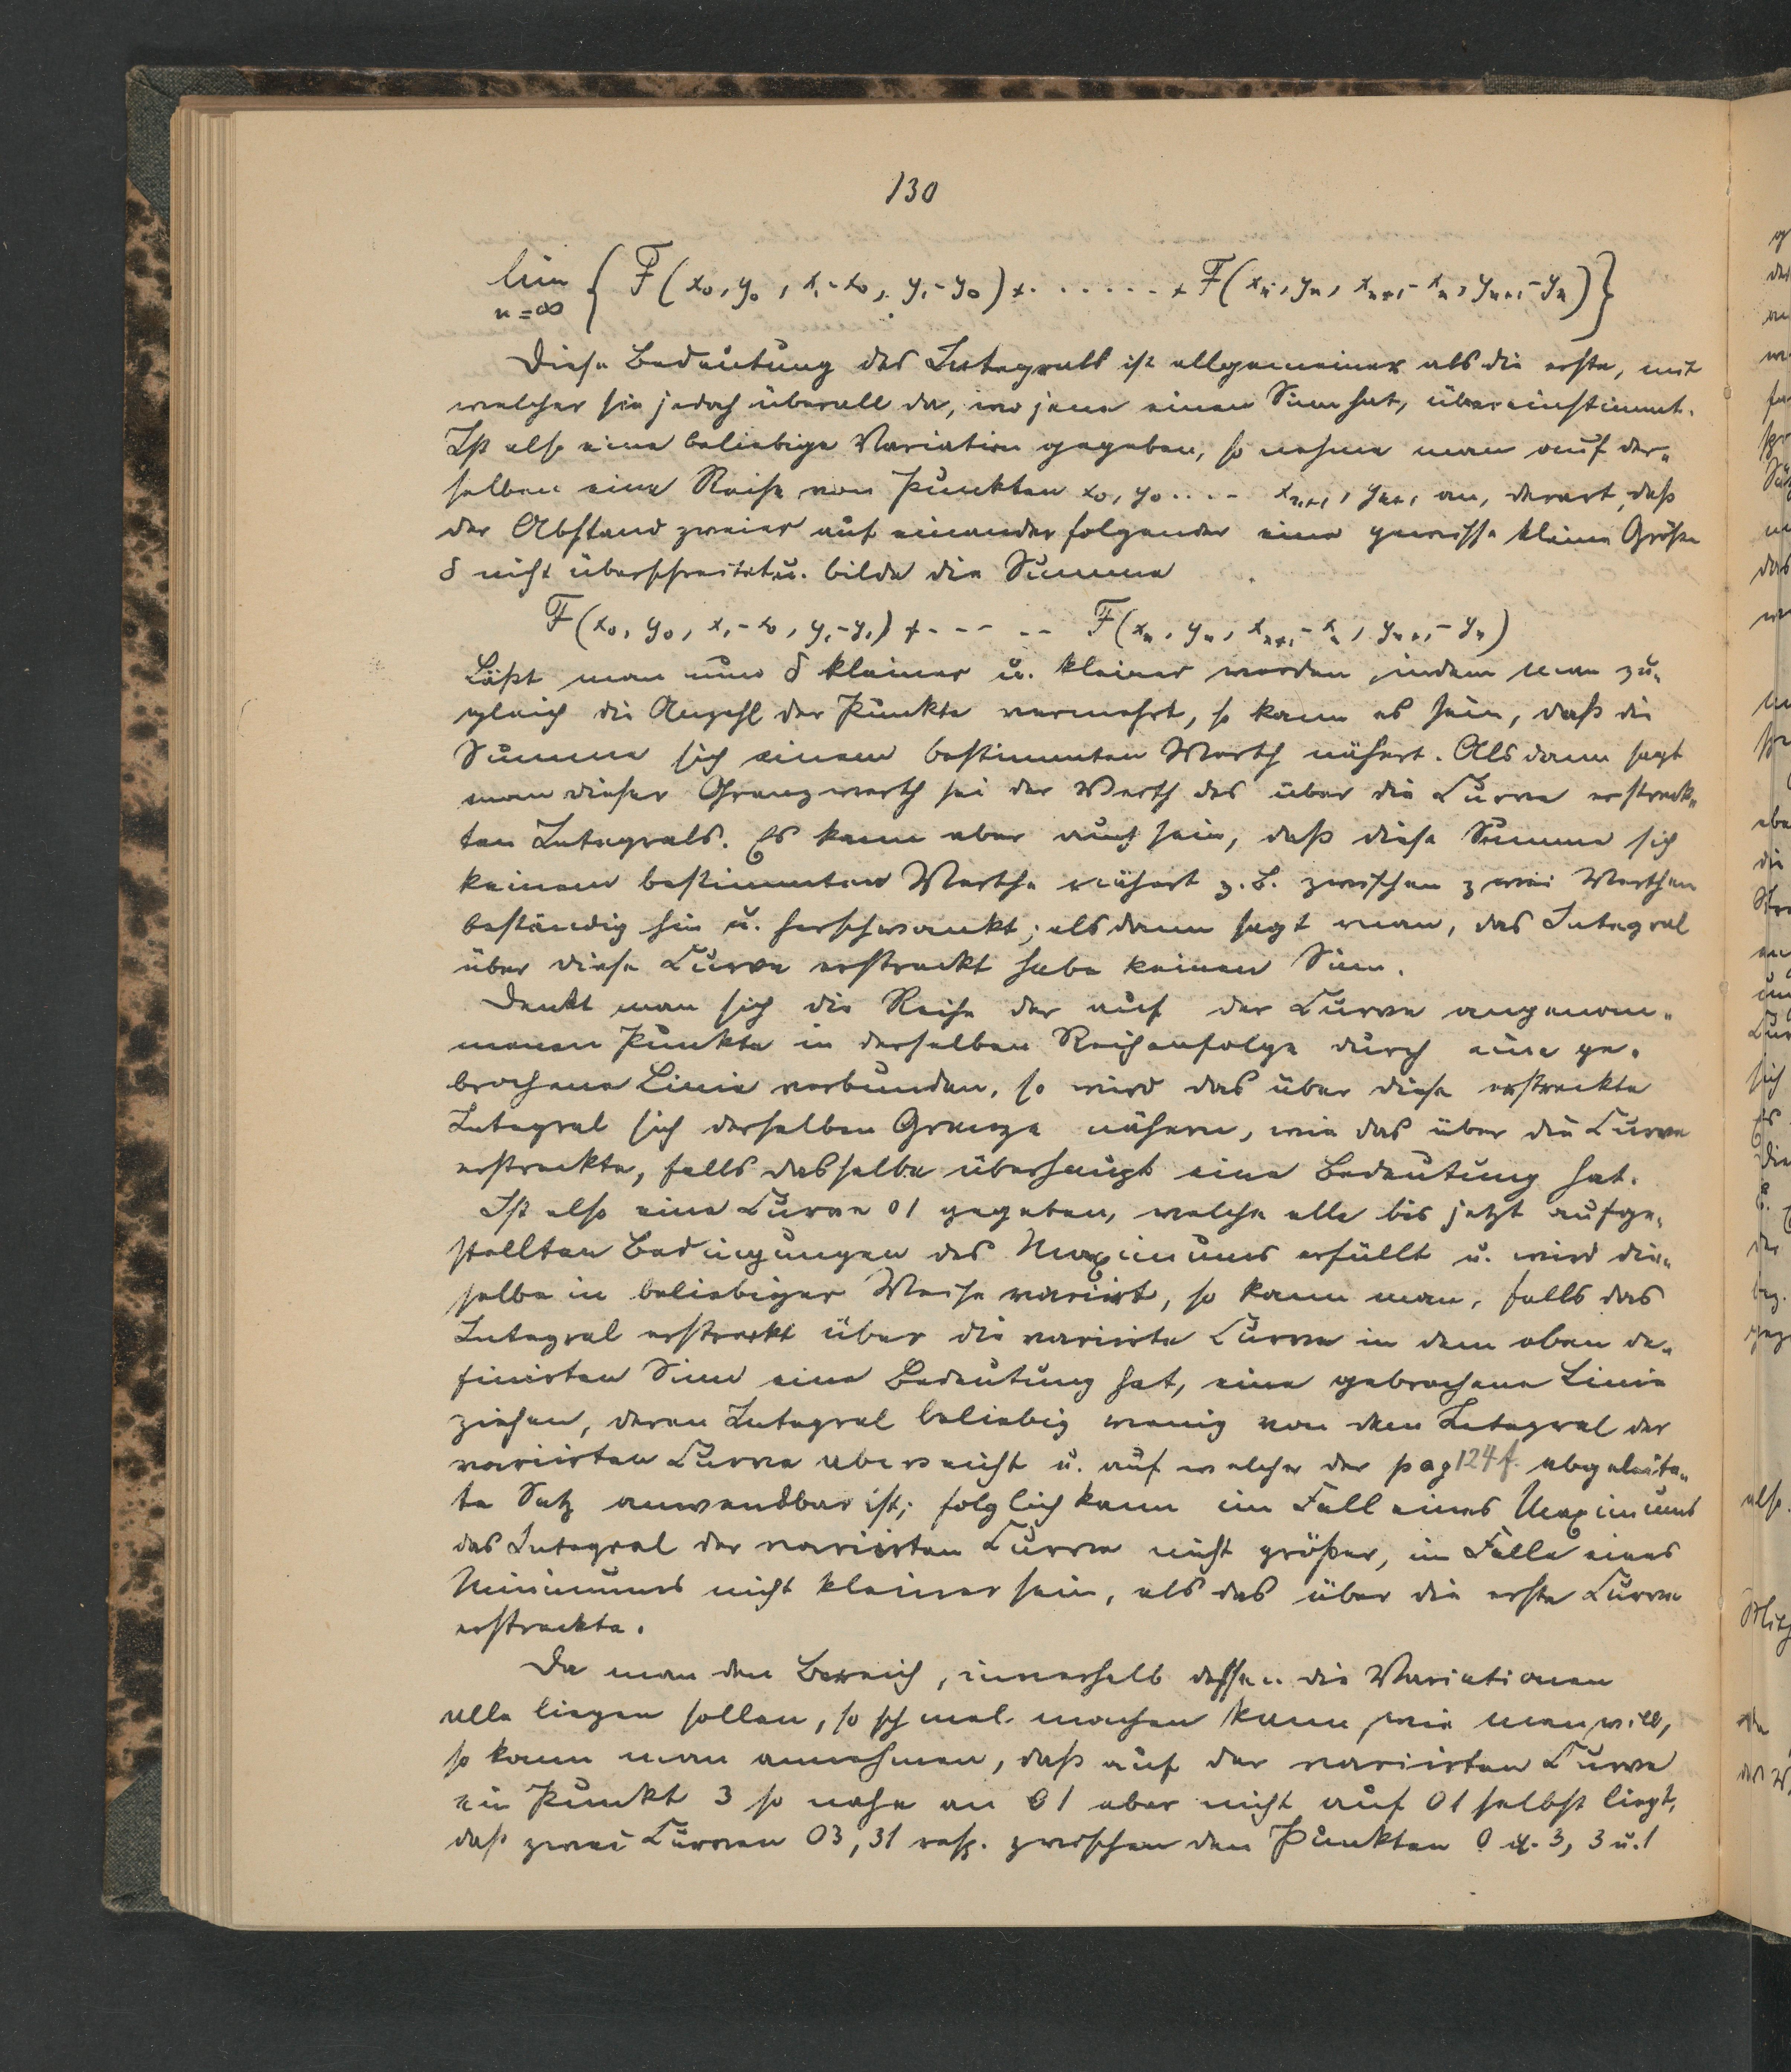 130
lim { F(x₀, y₀, x₁-x₀, y₁-y₀) + ...... + F(xₙ, yₙ, xₙ₊₁-xₙ, yₙ₊₁-yₙ) }
n=∞
Diese Bedeutung des Integrals ist allgemeiner als die erste, mit
welcher sie jedoch überall da, wo jene einen Sinn hat, übereinstimmt.
Ist also eine beliebige Variation gegeben, so nehme man auf der-
selben eine Reihe von Punkten x₀, y₀ .... xₙ₊₁, yₙ₊₁ an, derart, daß
der Abstand zweier auf einander folgender eine gewisse kleine Größe
δ nicht überschreitet u. bilde die Summe
F(x₀, y₀, x₁-x₀, y₁-y₁) + ---  -- F(xₙ, yₙ, xₙ₊₁-xₙ, yₙ₊₁-yₙ)
Läßt man nun δ kleiner u. kleiner werden, indem man zu-
gleich die Anzahl der Punkte vermehrt, so kann es sein, daß die
Summe sich einem bestimmten Werth nähert. Als dann sagt
man dieser Grenzwerth sei der Werth des über die Curve erstreck-
ten Integrals. Es kann aber auch sein, daß diese Summe sich
keinem bestimmten Werthe nähert z. B. zwischen zwei Werthen
beständig hin u. herschwankt; als dann sagt man, das Integral
über diese Curve erstreckt habe keinen Sinn.
Denkt man sich die Reihe der auf der Curve angenom-
menen Punkte in derselben Reihenfolge durch eine ge-
brochene Linie verbunden, so wird das über diese erstreckte
Integral sich derselben Grenze nähern, wie das über die Curve
erstreckte, falls dasselbe überhaupt eine Bedeutung hat.
Ist also eine Curve 01 gegeben, welche alle bis jetzt aufge-
stellten Bedingungen des Maximums erfüllt u. wird die-
selbe in beliebiger Weise variirt, so kann man, falls das
Integral erstreckt über die variirte Curve in dem oben de-
finirten Sinn eine Bedeutung hat, eine gebrochene Linie
ziehen, deren Integral beliebig wenig von dem Integral der
variirten Curve abweicht u. auf welche der pag 124 f. abgeleite-
te Satz anwendbar ist; folglich kann im Fall eines Maximums
das Integral der variirten Curve nicht größer, im Falle eines
Minimums nicht kleiner sein, als das über die erste Curve
erstreckte.
Da man den Bereich, innerhalb dessen die Variationen
alle liegen sollen, so schmal machen kann, wie man will,
so kann man annehmen, daß auf der variirten Curve
ein Punkt 3 so nahe an 01 aber nicht auf 01 selbst liegt,
daß zwei Curven 03, 31 resp. zwischen den Punkten 0 u. 3, 3 u. 1